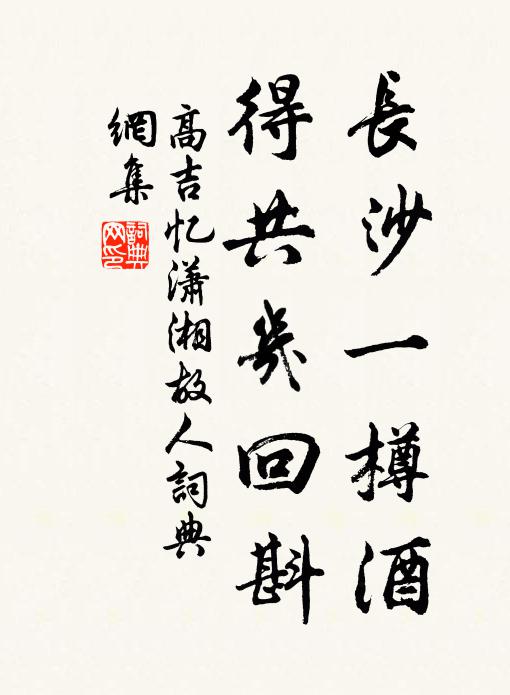 長沙一樽酒
得共幾回斟
高吉忆瀟湘故人詞典
網集
詞典
网印